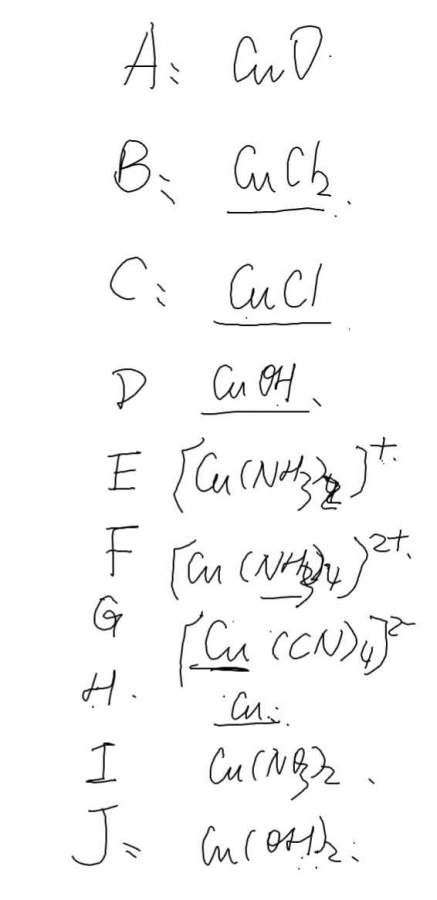 A: CuO
B: CuCl₂
C: CuCl
D CuOH
E [Cu(NH₃)₂]⁺
F [Cu(NH₃)₄]²⁺
G [Cu(CN)₄]²⁻
H. Cu
I Cu(NO₃)₂
J: Cu(OH)₂